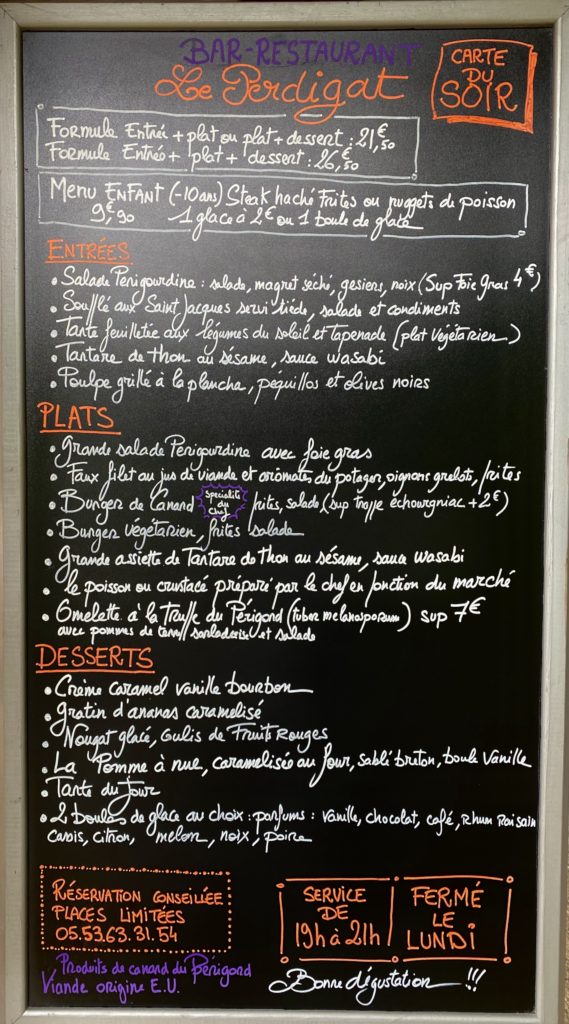 BAR-RESTAURANT
Le Perdigat
CARTE
DU
SOIR
Formule Entrée + plat ou plat + dessert : 21€,50
Formule Entrée + plat + dessert : 26€,50
Menu ENFANT (-10ans) Steak haché Frites ou nuggets de poisson
9€,90 1 glace à 2€ ou 1 boule de glace
ENTRÉES
• Salade Périgourdine : salade, magret séché, gesiers, noix (Sup Foie Gras 4€)
• Soufflé aux Saint Jacques servi tiède, salade et condiments
• Tarte feuilletée aux légumes du soleil et tapenade (plat végétarien)
• Tartare de thon au sésame, sauce wasabi
• Poulpe grillé à la plancha, péquillos et olives noirs
PLATS
• Grande salade Périgourdine avec foie gras
• Faux filet au jus de viande et aromates du potager, oignons grelots, frites
• Burger de Canard Spécialité du Chef frites, salade (sup trappe échourgniac +2€)
• Burger végétarien, frites salade
• Grande assiette de Tartare de thon au sésame, sauce wasabi
• le poisson ou crustacé préparé par le chef en fonction du marché
• Omelette à la Truffe du Périgord (tuber melanosporum) sup 7€
avec pommes de terre sarladaise et salade
DESSERTS
• Crème caramel vanille bourbon
• Gratin d'ananas caramelisé
• Nougat glacé, Coulis de Fruits Rouges
• La Pomme à nue, caramelisée au four, sablé breton, boule vanille
• Tarte du Jour
• 2 boules de glace au choix : parfums : vanille, chocolat, café, Rhum Raisain
cassis, citron, melon, noix, poire
RÉSERVATION CONSEILLÉE
PLACES LIMITÉES
05.53.63.31.54
SERVICE
DE
19h à 21h
FERMÉ
LE
LUNDI
Produits de canard du Périgord
Viande origine E.U.
Bonne dégustation !!!